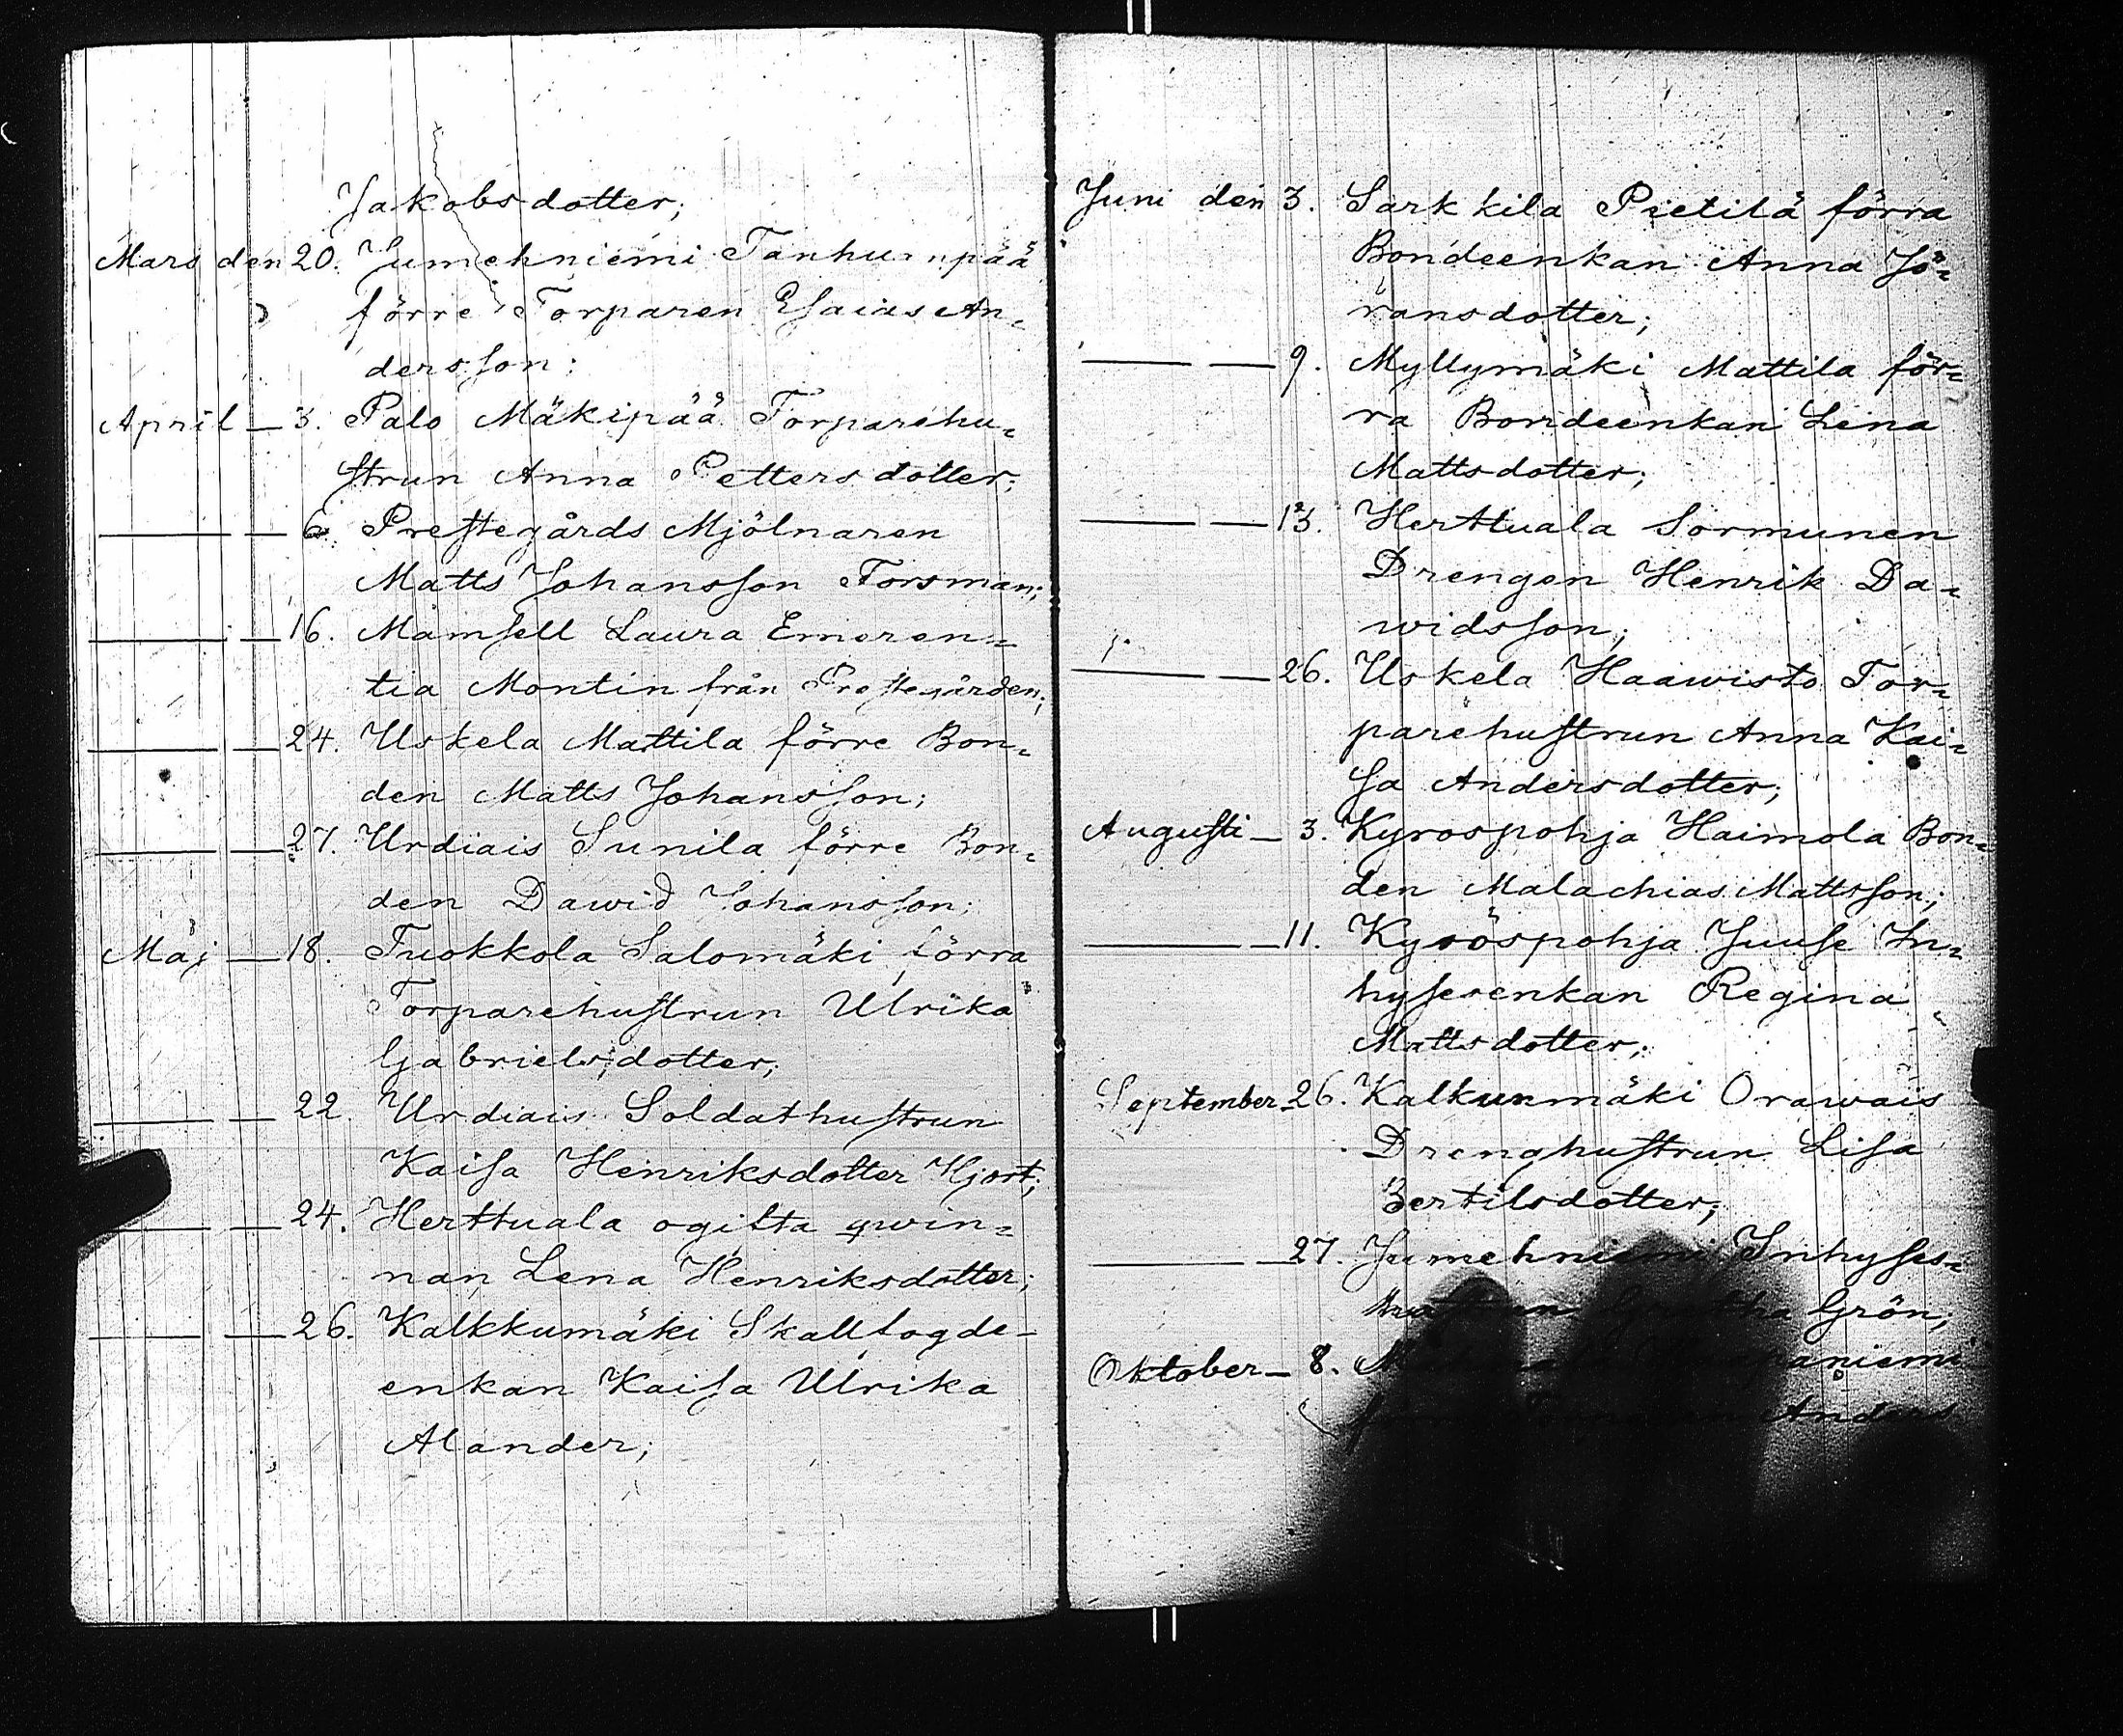 Jakobsdotter;
Mars den 20. Jumehniemi Tanhuanpää
förre Torparen Esaias An-
dersson;
April — 3. Palo Mäkipää Torparehu-
strun Anna Pettersdotter;
— — 6 Prestegårds Mjölnaren
Matts Johansson Forsman;
— — 16. Mamsell Laura Emeren-
tia Montin från Prestegården;
— — 24. Uskela Mattila förre Bon-
den Matts Johansson;
— — 27. Urdiais Sunila förre Bon-
den Dawid Johansson;
Maj — 18. Tuokkola Salomäki förra
Torparehustrun Ulrika
Gabrielsdotter;
— — 22. Urdiais Soldathustrun
Kaisa Henriksdotter Hjort;
— — 24. Herttuala ogifta qwin-
nan Lena Henriksdotter;
— — 26. Kalkkumäki Skallfogde-
enkan Kaisa Ulrika
Alander;
Juni den 3. Sarkkila Pietilä förra
Bondeenkan Anna Jö-
ransdotter;
— — 9. Myllymäki Mattila för-
ra Bondeenkan Lena
Mattsdotter;
— — 13. Herttuala Sormunen
Drengen Henrik Da-
widsson;
— — 26. Uskela Haawisto Tor-
parehustrun Anna Kai-
sa Andersdotter;
Augusti — 3. Kyrospohja Haimola Bon-
den Malachias Mattsson;
— — 11. Kyröspohja Juuse In-
hysesenkan Regina
Mattsdotter;
September — 26. Kalkunmäki Orawais
Drenghustrun Lisa
Bertilsdotter;
— — 27. Jumehniemi Inhyses-
hustrun Grön;
Oktober — 8.
Anders